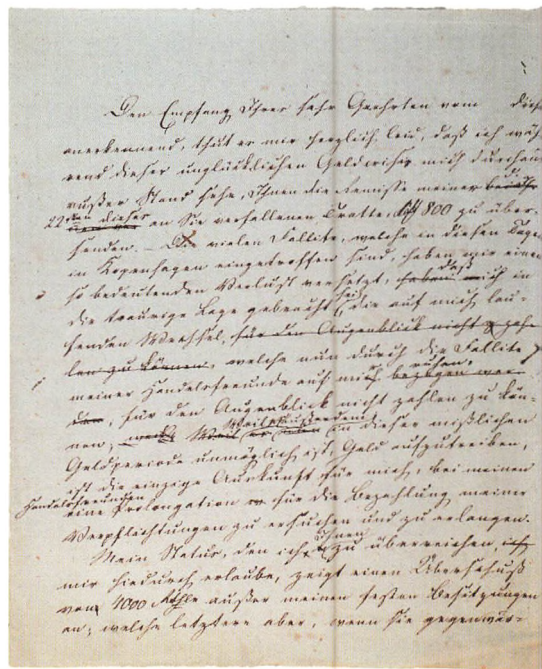 Den Empfang Ihres sehr Geehrten vom diese
anerkennend, thut es mir herzlich leid, daß ich wäh-
rend dieser unglücklichen Geldcrisis mich durchaus
außer Stand sehe, Ihnen die Remisse meiner
22 dieses an Sie verfallenen Tratte, 800 zu über-
senden. – Die vielen Fallite, welche in diesen Tagen
in Kopenhagen eingetroffen sind, haben mir einen
so bedeutenden Verlust versetzt, haben daß mich in
die traurige Lage gebracht, die auf mich lau-
fenden Wechsel, für den Augenblick nicht zah-
len zu können, welche nun durch die Fallite
meiner Handelsfreunde auf mich bezogen wer- ruhen,
den, für den Augenblick nicht zahlen zu kön-
nen; in dieser mißlichen
Geldperiode unmöglich ist, Geld aufzutreiben,
ist die einzige Auskunft für mich, bei meinen
Handelsfreunden eine Prolongation für die Bezahlung meiner
Verpflichtungen zu ersuchen und zu erlangen.
Mein Status, den ich Ihnen zu überreichen, ich
mir hiedurch erlaube, zeigt einen Überschuß
von 4000 außer meinen festen Besitzungen
an; welche letztere aber, wenn sie gegenwär-